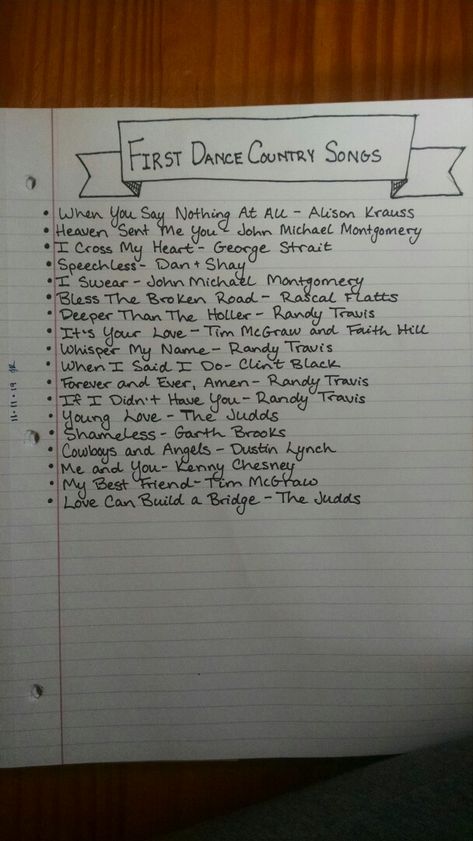 FIRST DANCE COUNTRY SONGS
• When You Say Nothing At All - Alison Krauss
• Heaven Sent Me You - John Michael Montgomery
• I Cross My Heart - George Strait
• Speechless - Dan + Shay
• I Swear - John Michael Montgomery
• Bless The Broken Road - Rascal Flatts
• Deeper Than The Holler - Randy Travis
• It's Your Love - Tim McGraw and Faith Hill
• Whisper My Name - Randy Travis
• When I Said I Do - Clint Black
• Forever and Ever, Amen - Randy Travis
• If I Didn't Have You - Randy Travis
• Young Love - The Judds
• Shameless - Garth Brooks
• Cowboys and Angels - Dustin Lynch
• Me and You - Kenny Chesney
• My Best Friend - Tim McGraw
• Love Can Build a Bridge - The Judds
11-11-19